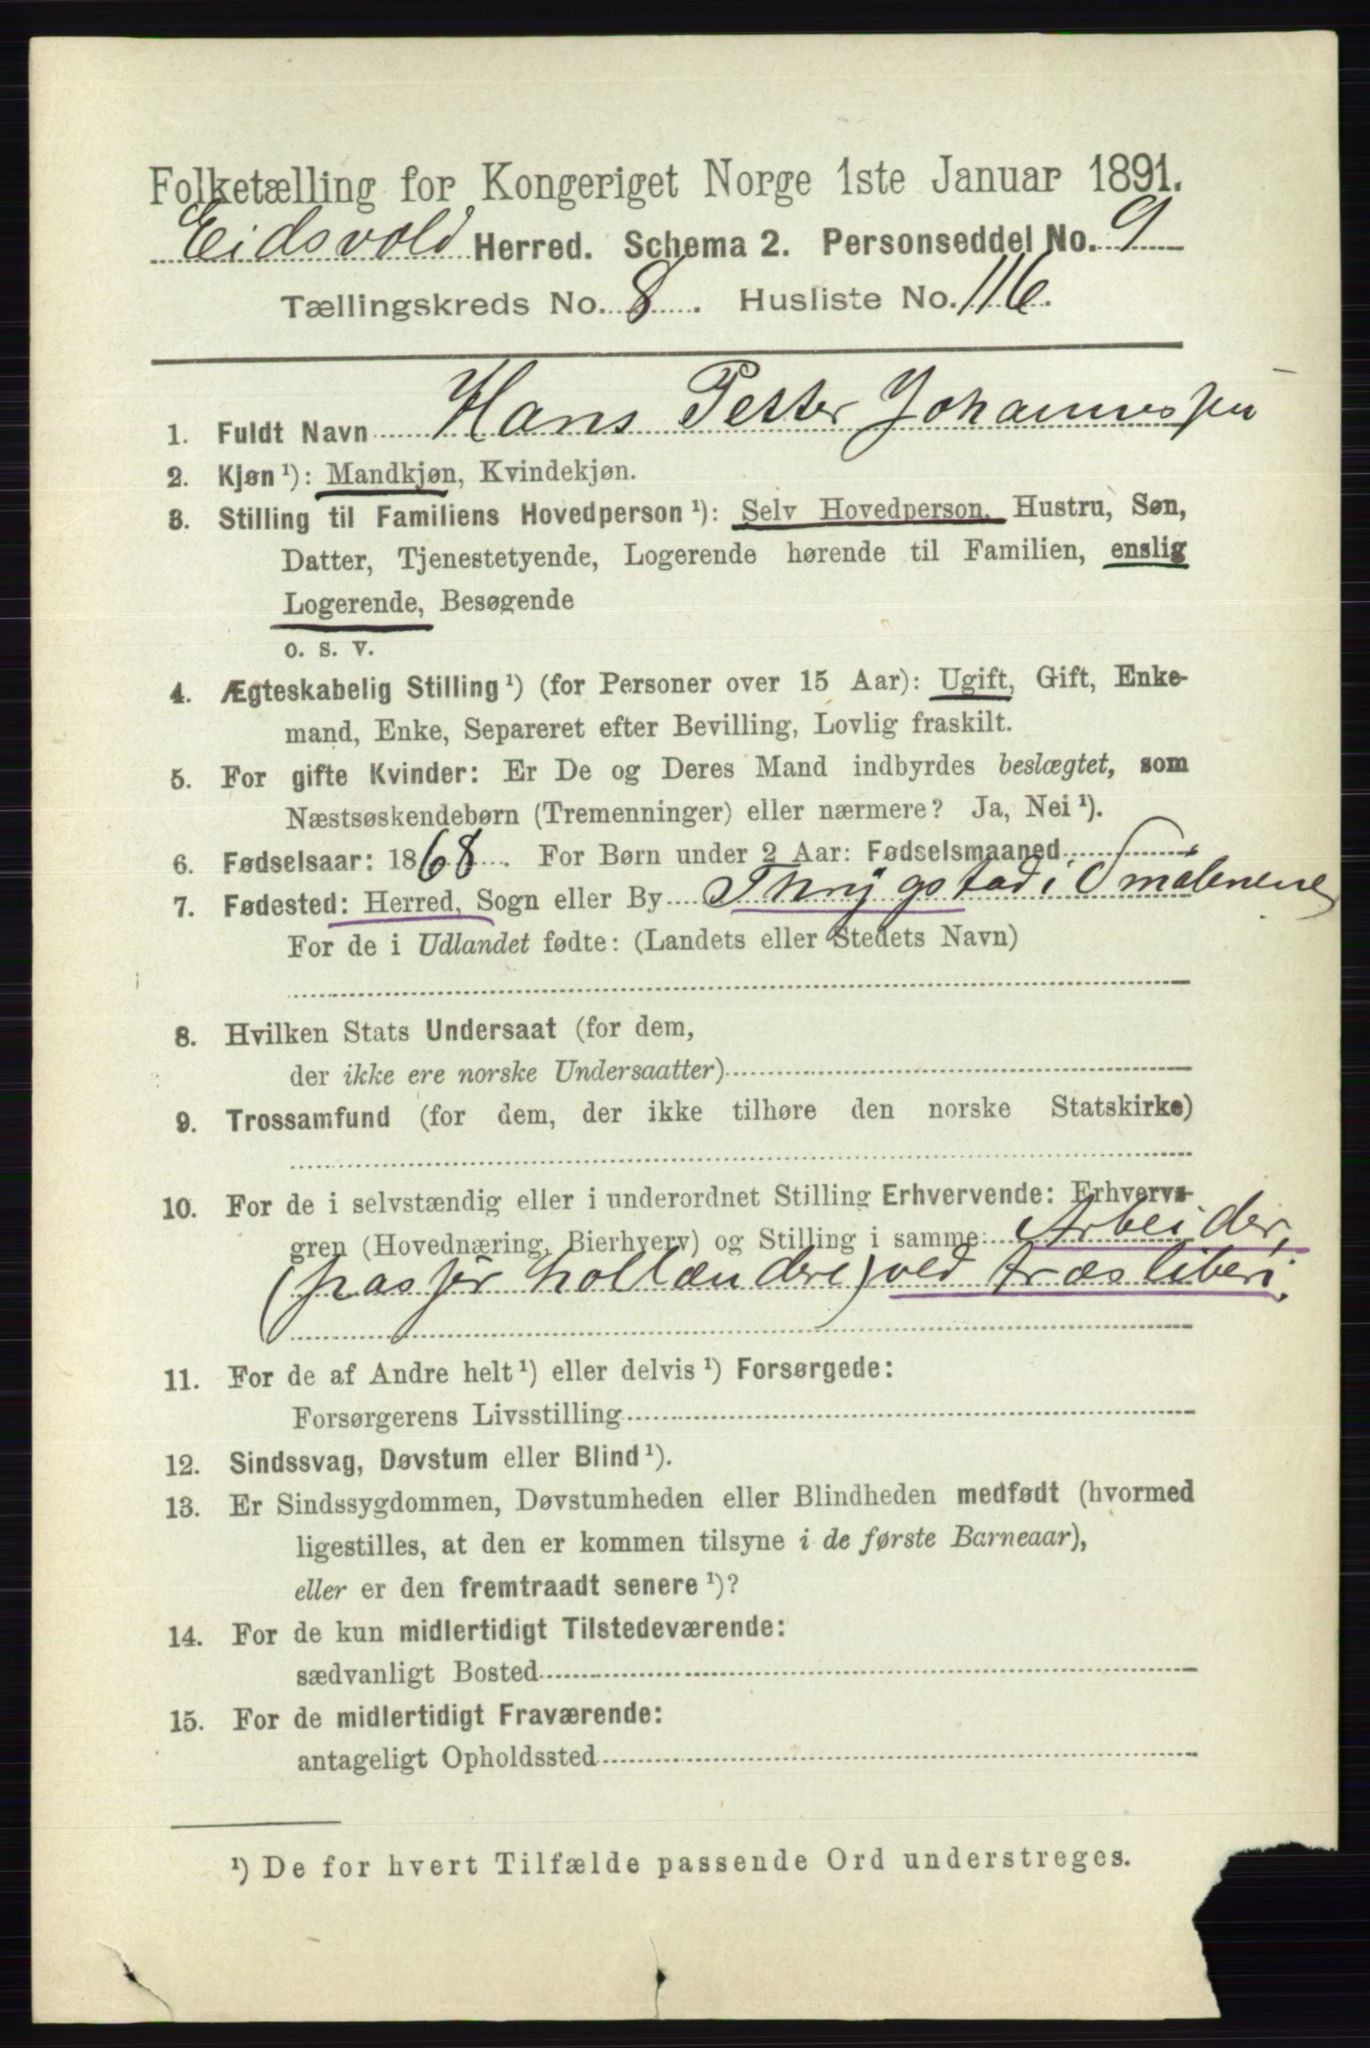 Folketælling for Kongeriget Norge 1ste Januar 1891.
Eidsvold Herred. Schema 2. Personseddel No. 9
Tællingskreds No. 8. Husliste No. 116.
1. Fuldt Navn Hans Petter Johannessen
2. Kjøn ¹): Mandkjøn, Kvindekjøn.
3. Stilling til Familiens Hovedperson ¹): Selv Hovedperson, Hustru, Søn,
Datter, Tjenestetyende, Logerende hørende til Familien, enslig
Logerende, Besøgende
o. s. v.
4. Ægteskabelig Stilling ¹) (for Personer over 15 Aar): Ugift, Gift, Enke-
mand, Enke, Separeret efter Bevilling, Lovlig fraskilt.
5. For gifte Kvinder: Er De og Deres Mand indbyrdes beslægtet, som
Næstsøskendebørn (Tremenninger) eller nærmere? Ja, Nei ¹).
6. Fødselsaar: 1868. For Børn under 2 Aar: Fødselsmaaned
7. Fødested: Herred, Sogn eller By Thrygstad i Smålenene
For de i Udlandet fødte: (Landets eller Stedets Navn)
8. Hvilken Stats Undersaat (for dem,
der ikke ere norske Undersaatter)
9. Trossamfund (for dem, der ikke tilhøre den norske Statskirke)
10. For de i selvstændig eller i underordnet Stilling Erhvervende: Erhvervs-
gren (Hovednæring, Bierhverv) og Stilling i samme Arbeider,
(passer hollændere) ved træsliberi.
11. For de af Andre helt ¹) eller delvis ¹) Forsørgede:
Forsørgerens Livsstilling
12. Sindssvag, Døvstum eller Blind ¹).
13. Er Sindssygdommen, Døvstumheden eller Blindheden medfødt (hvormed
ligestilles, at den er kommen tilsyne i de første Barneaar),
eller er den fremtraadt senere ¹)?
14. For de kun midlertidigt Tilstedeværende:
sædvanligt Bosted
15. For de midlertidigt Fraværende:
antageligt Opholdssted
¹) De for hvert Tilfælde passende Ord understreges.